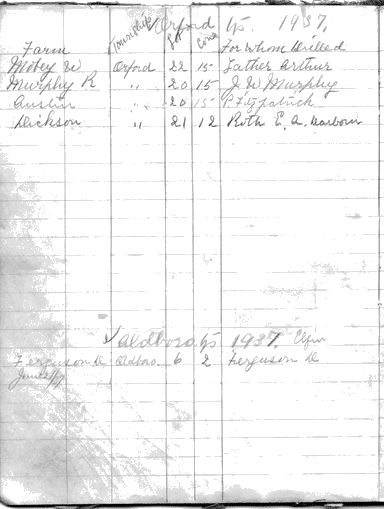 Township Orford Tp 1937.
Farm Lot Con For Whom Drilled
Mobey W Orford 22 15 Father Arthur
Murphy R " 20 15 J W Murphy
Austin " 20 15 P Fitzpatrick
Dickson " 21 12 Roth E. A. Darbour
✓ Aldboro Tp 1937. Elgin
Ferguson D Aldboro. 6 2 Ferguson D